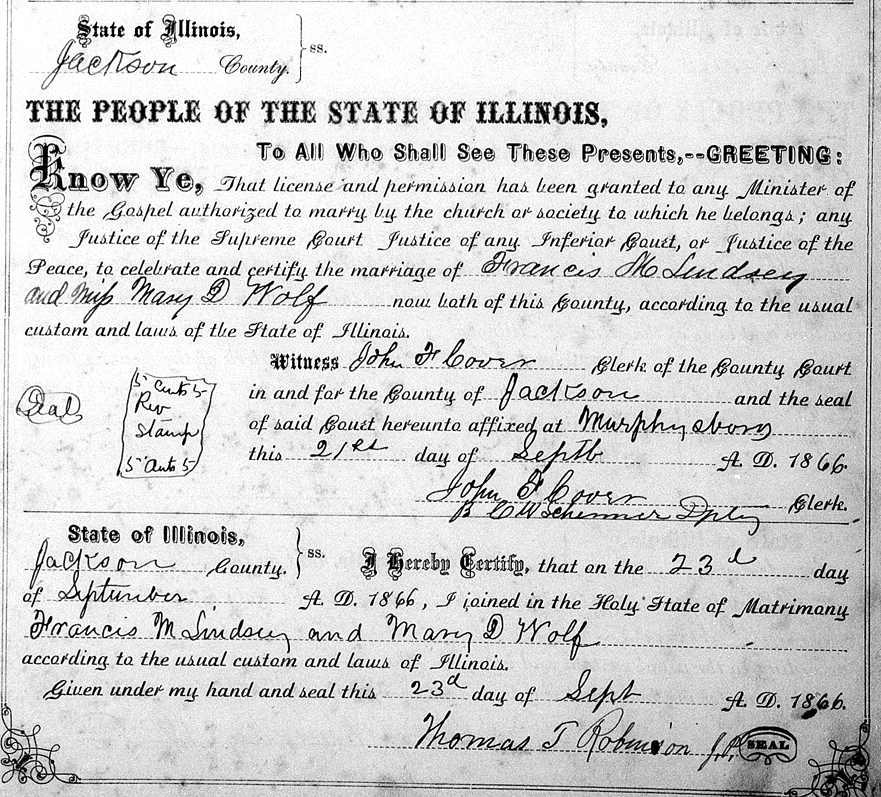 State of Illinois,
Jackson County. } ss.
THE PEOPLE OF THE STATE OF ILLINOIS,
To All Who Shall See These Presents,--GREETING:
Know Ye, That license and permission has been granted to any Minister of
the Gospel authorized to marry by the church or society to which he belongs; any
Justice of the Supreme Court Justice of any Inferior Court, or Justice of the
Peace, to celebrate and certify the marriage of Francis M Lindsey
and Miss Mary D Wolf now both of this County, according to the usual
custom and laws of the State of Illinois.
Witness John F Cover Clerk of the County Court
in and for the County of Jackson and the seal
of said Court hereunto affixed at Murphysboro
this 21st day of Septb A. D. 1866.
Seal
5 Cents 5
Rev
Stamp
5 Cents 5
John F Cover Clerk.
B C W Schimmer Dpty
State of Illinois,
Jackson County. } ss.
I Hereby Certify, that on the 23d day
of September A. D. 1866, I joined in the Holy State of Matrimony
Francis M Lindsey and Mary D Wolf
according to the usual custom and laws of Illinois.
Given under my hand and seal this 23d day of Sept A. D. 1866.
Thomas T Robinson J.P. SEAL